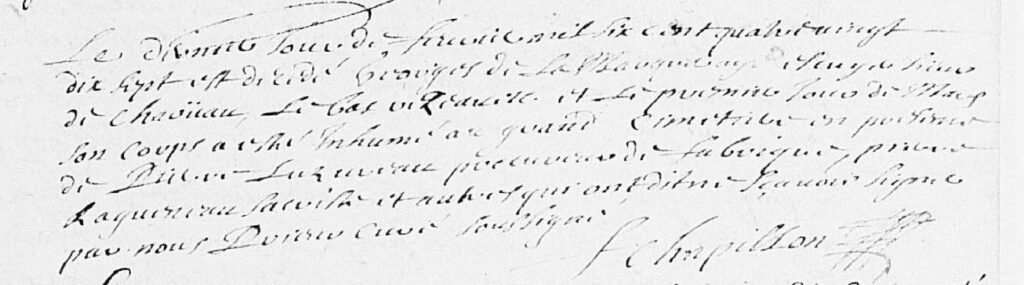 Le dernie Jour de fevrie mil six cent quatre vingt
dix sept est decedé Georges de La escuyer sieur
de Chavïeau, Le bas et Le premie Jour de Mars
son corps a esté Inhumé au grand Cimetiere en presence
de Pierre procureur de fabrique, pierre
Ragueneau sacriste et autres qui ont dit ne sçavoir signe
par nous Prieur Curé soussigné
f Chapillon